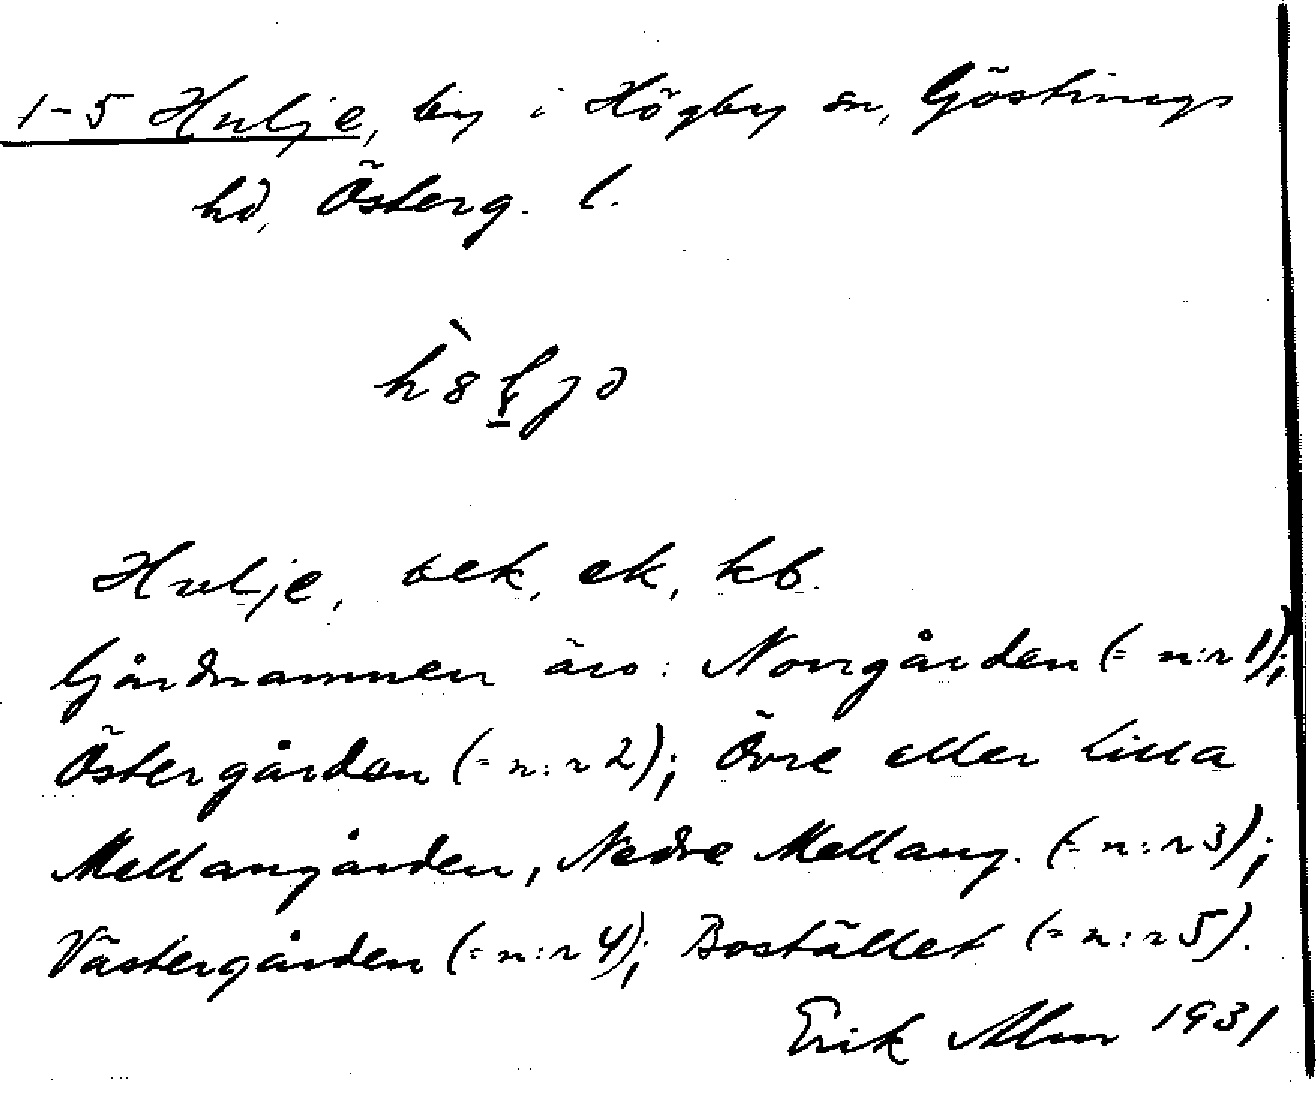 1-5 Hulje, by i Högby sn, Göstrings
hd, Österg. l.
Hulje, aek, ek, kb.
Gårdnamnen äro: Norrgården (= n:r 1);
Östergården (= n:r 2); Övre eller Lilla
Mellangården, Nedre Mellang. (= n:r 3);
Västergården (= n:r 4); Bostället (= n:r 5).
Erik Alm 1931